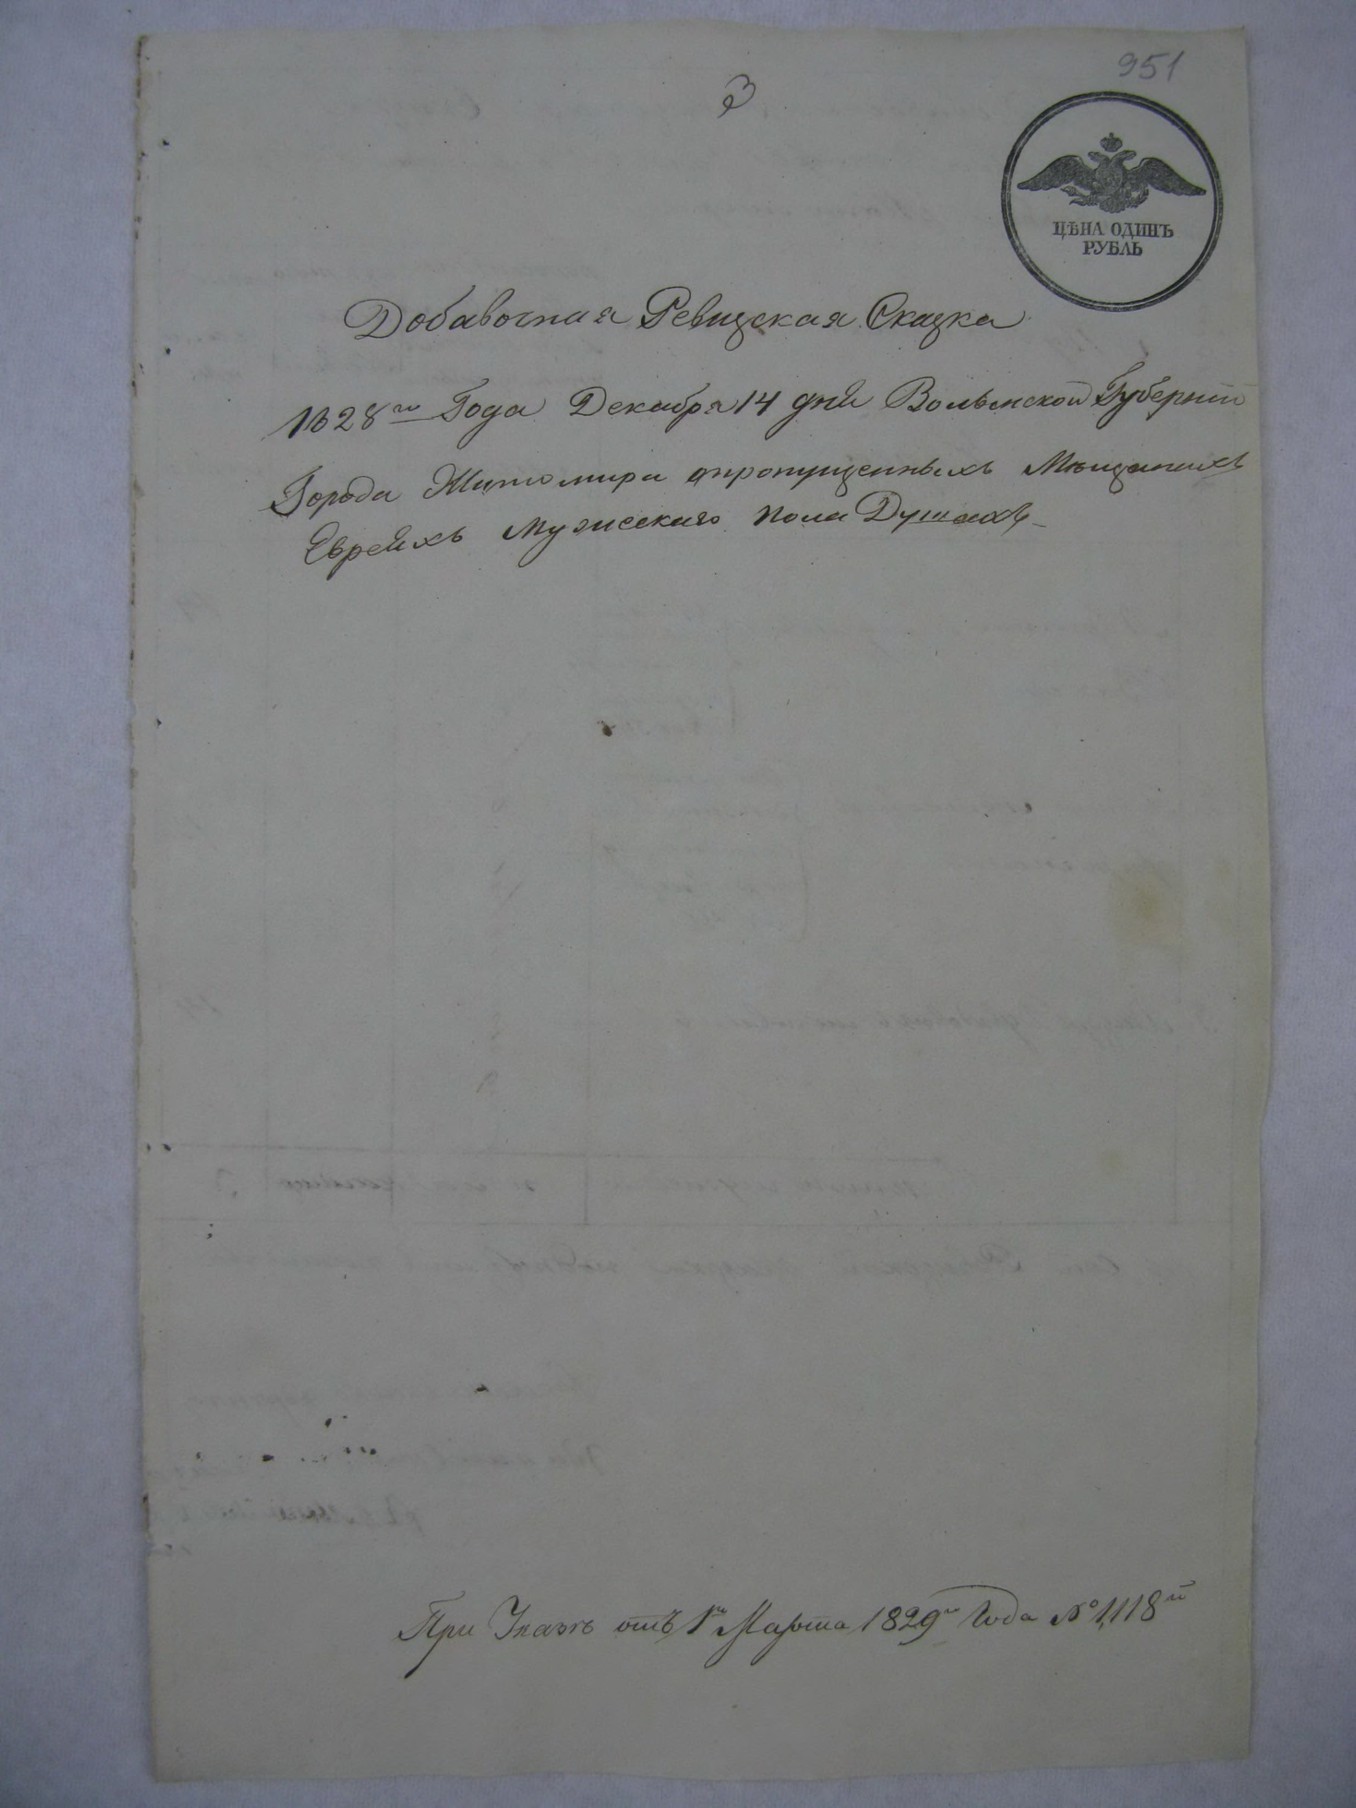 951
3
ЦѢНА ОДИНЪ
РУБЛЬ
Добавочная Ревизская Сказка
1828го Года Декабря 14 дня Волынской Губернии
Города Житомира опропущенныхъ Мещанахъ
Евреяхъ Мужескаго пола Душахъ
При Указѣ отъ 1го Марта 1829го Года № 1118й